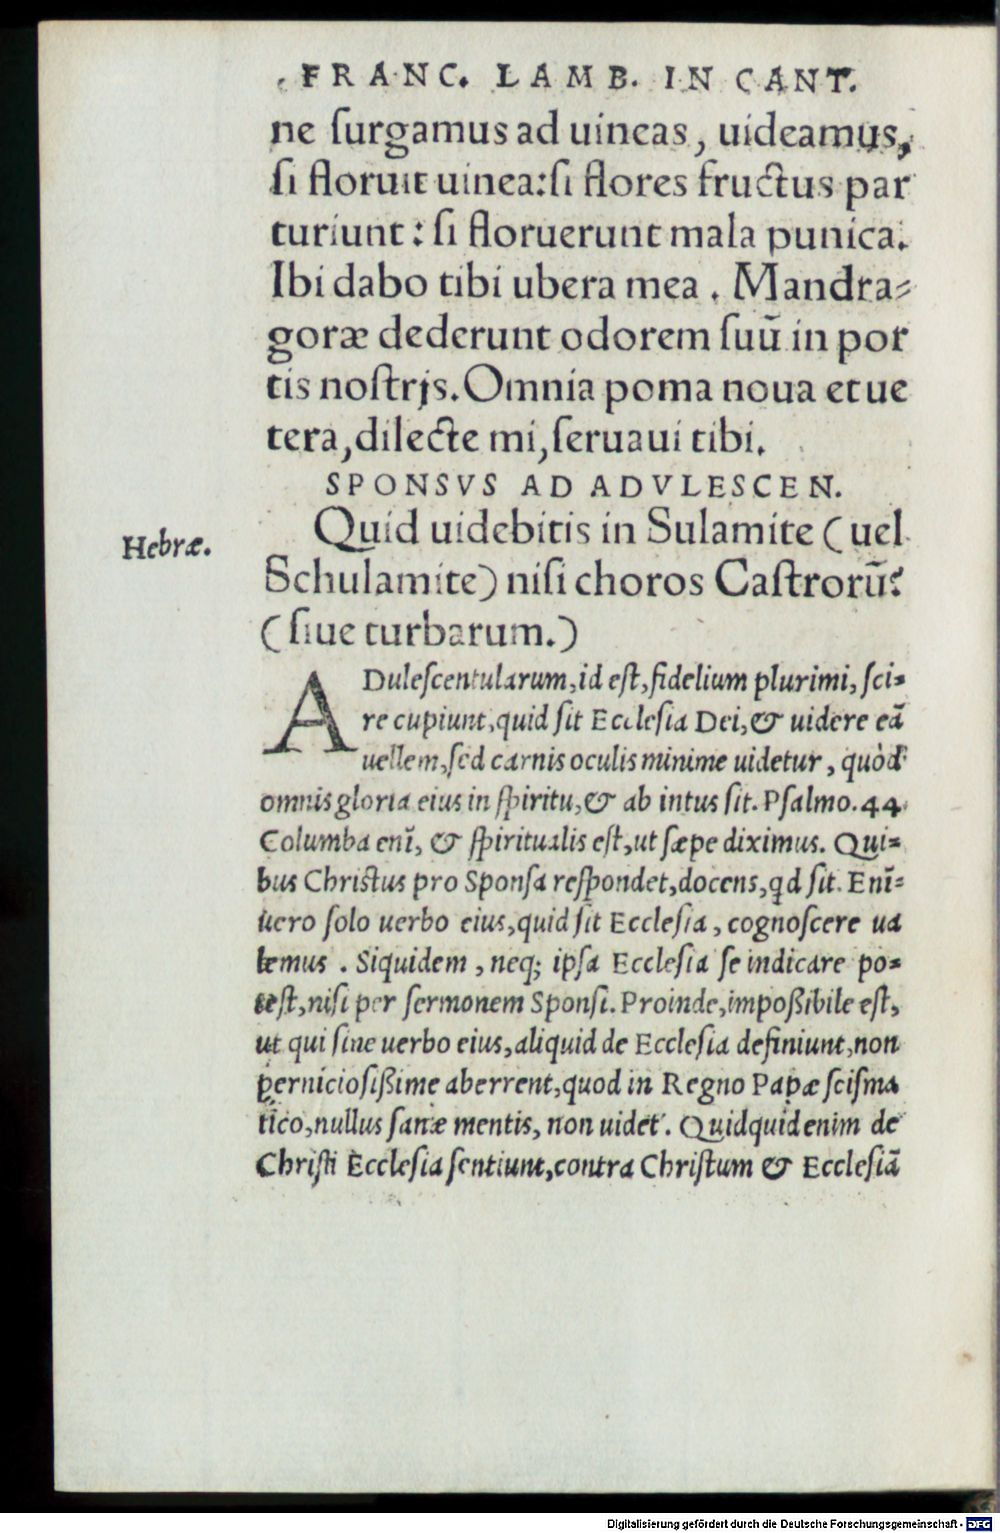 FRANC. LAMB. IN CANT.
ne ſurgamus ad uineas, uideamus,
ſi floruit uinea: ſi flores fructus par
turiunt: ſi floruerunt mala punica.
Ibi dabo tibi ubera mea. Mandra⸗
goræ dederunt odorem ſuū in por
tis noſtrijs. Omnia poma noua et ue
tera, dilecte mi, ſeruaui tibi.
SPONSVS AD ADVLESCEN.
Hebræ.
Quid uidebitis in Sulamite (uel
Schulamite) niſi choros Caſtrorū?
(ſiue turbarum.)
ADuleſcentularum, id eſt, fidelium plurimi, ſci⸗
re cupiunt, quid ſit Eccleſia Dei, & uidere eā
uellem, ſed carnis oculis minime uidetur, quòd
omnis gloria eius in ſpiritu, & ab intus ſit. Pſalmo. 44
Columba enī, & ſpiritualis eſt, ut ſæpe diximus. Qui⸗
bus Chriſtus pro Sponſa reſpondet, docens, qd ſit. Enī⸗
uero ſolo uerbo eius, quid ſit Eccleſia, cognoſcere ua
lemus. Siquidem, neq; ipſa Eccleſia ſe indicare po⸗
teſt, niſi per ſermonem Sponſi. Proinde, impoßibile eſt,
ut qui ſine uerbo eius, aliquid de Eccleſia definiunt, non
perniciosißime aberrent, quod in Regno Papæ ſciſma
tico, nullus ſanæ mentis, non uidet. Quidquid enim de
Chriſti Eccleſia ſentiunt, contra Chriſtum & Eccleſiā
Digitalisierung gefördert durch die Deutsche Forschungsgemeinschaft - DFG